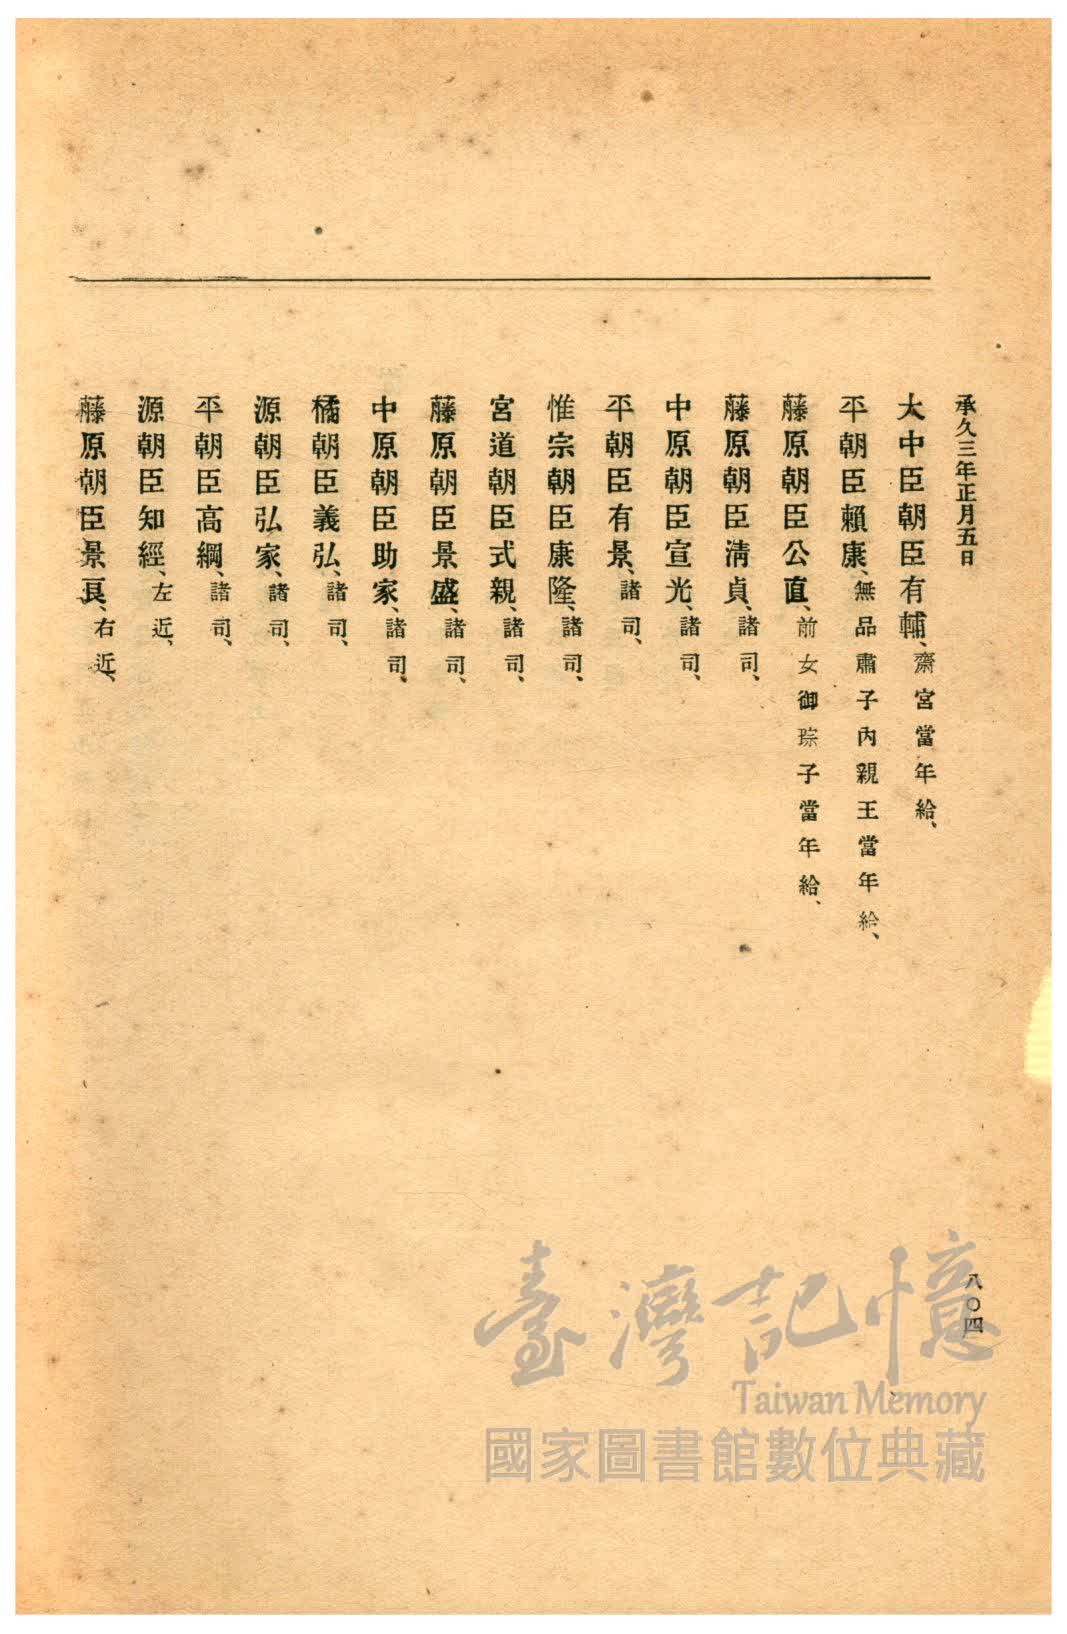 承久三年正月五日
大中臣朝臣有輔、齋宮當年給、
平朝臣賴康、無品肅子內親王當年給、
藤原朝臣公直、前女御琮子當年給、
藤原朝臣淸貞、諸司、
中原朝臣宣光、諸司、
平朝臣有景、諸司、
惟宗朝臣康隆、諸司、
宮道朝臣式親、諸司、
藤原朝臣景盛、諸司、
中原朝臣助家、諸司、
橘朝臣義弘、諸司、
源朝臣弘家、諸司、
平朝臣高綱、諸司、
源朝臣知經、左近、
藤原朝臣景長、右近、
八〇四
臺灣記憶
Taiwan Memory
國家圖書館數位典藏